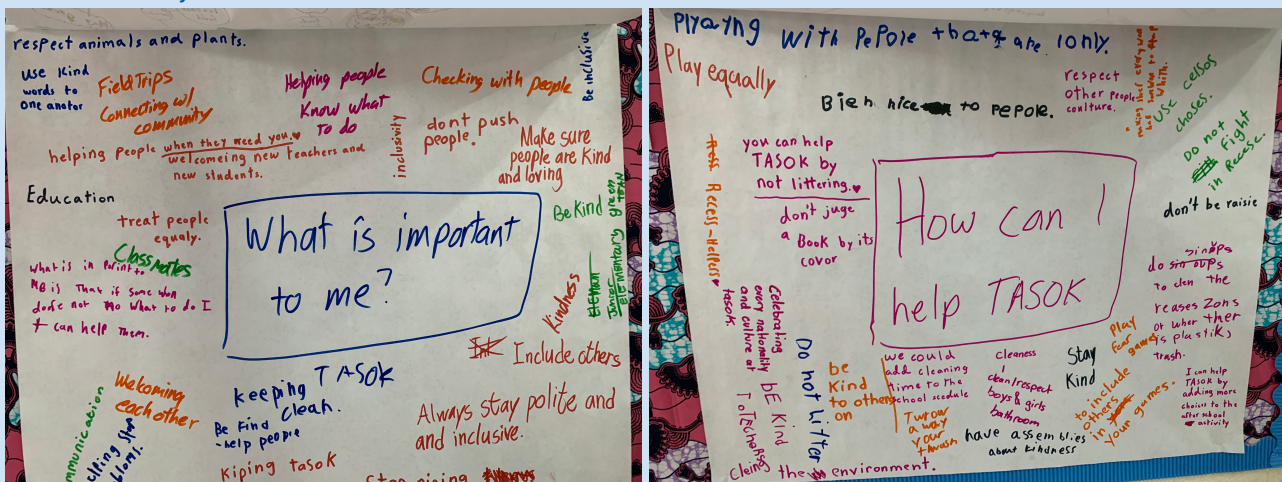 respect animals and plants.
use kind
words to
one anotor
Field Trips
Connecting w/
community
Helping people
Know what
to do
Checking with people
Be inclusive
helping people when they need you.
welcomeing new teachers and
new students.
inclusivity
dont push
people.
Make sure
people are Kind
and loving
Education
treat people
equaly.
Classmates
What is important
to me?
Be Kind
green
team
Junior
Elementary
what is in porint to
me is That if some won
dose not no What to do I
can help Them.
Kindness
Include others
Welcoming
each other
keeping TASOK
clean.
Be Kind
-help people
Always stay polite and
and inclusive.
Kiping tasok
Plyayng with PePole that are lonly.
Play equally
Bieh nice to pepole.
respect
other people
conlture.
USE cellsos
choses.
Do not
Fight
in Recese.
you can help
TASOK by
not littering.
don't juge
a Book by its
covor
Recess-Helpers
How can I
help TASOK
don't be raisie
sinups
do
to clen the
reases Zons
ther
is plastik,
trash.
Celebrating
every nationality
and culture at
tasok.
Do not litter
be
Kind
to others
on
we could
add cleaning
time to the
school scedule
cleaness
clean/respect
boys & girls
bathroom
Stay
Kind
Play
fear
games
to include
others
in
your games.
I can help
TASOK by
adding more
choices to the
after school
activity
bE Kind
To Techars
Turow
a way
your
trash
have assemblies
about kindness
Cleing the environment.